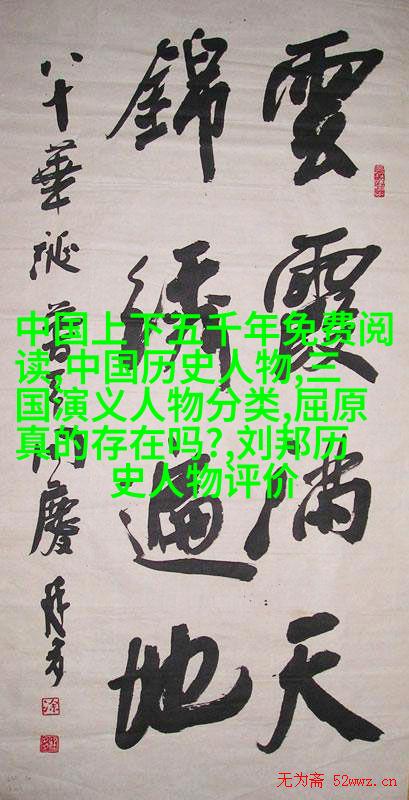 雲霞滿天
錦綉遍地
八十華誕 普天同慶
中国上下五千年免费阅
读,中国历史人物,三
国演义人物分类,屈原
真的存在吗?,刘邦历
史人物评价
无为斋 52wwz.cn